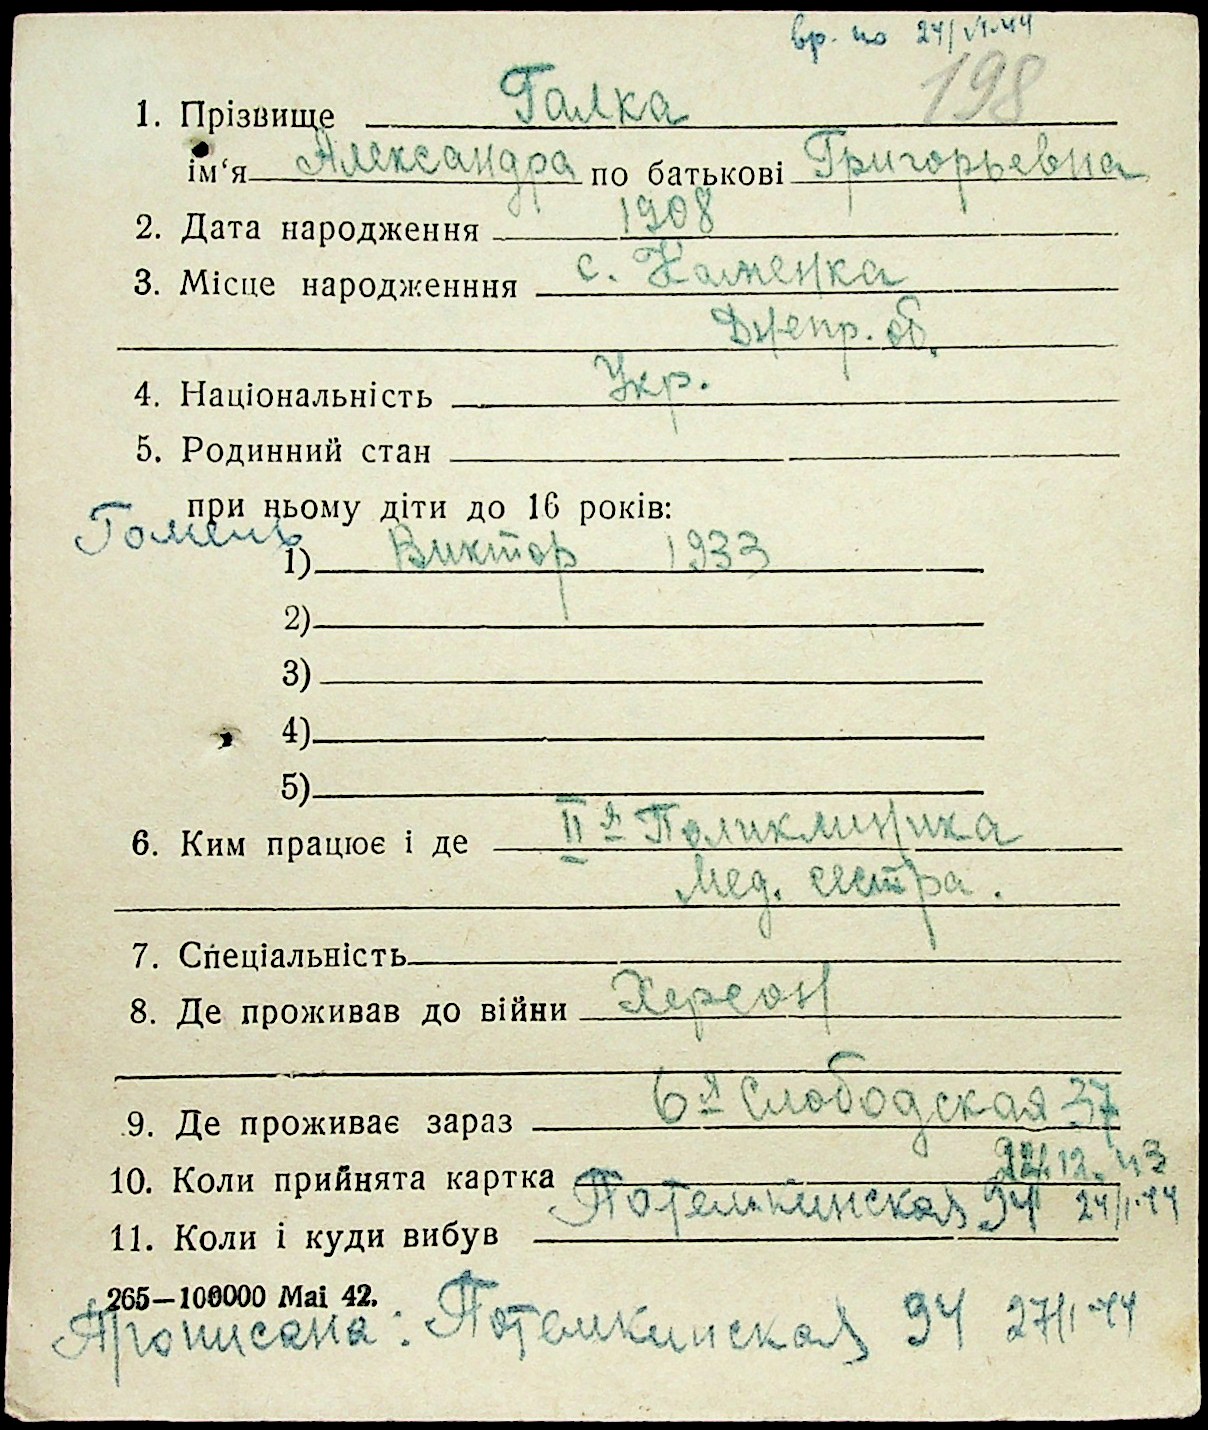 вр. по 24/VI-44
198
1. Прізвище Галка
ім‘я Александра по батькові Григорьевна
2. Дата народження 1908
3. Місце народженння с. Каменка
Днепр. об.
4. Національність Укр.
5. Родинний стан
при ньому діти до 16 років:
Гомель
1) Виктор 1933
2)
3)
4)
5)
6. Ким працює і де II я Поликлиника
Мед. сестра.
7. Спеціальність
8. Де проживав до війни Херсон
9. Де проживає зараз 6я Слободская 37
10. Коли прийнята картка 22/12. 43
Потемкинская 94 24/I-44
11. Коли і куди вибув
265—100000 Маі 42.
Прописана: Потемкинская 94 27/I-44